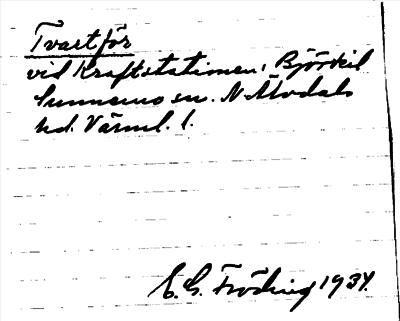 Tvartför
vid Kraftstationen, Björkil
Sunnemo sn. N Älvdals
hd. Värml. l.
E. G. Fröding 1934.